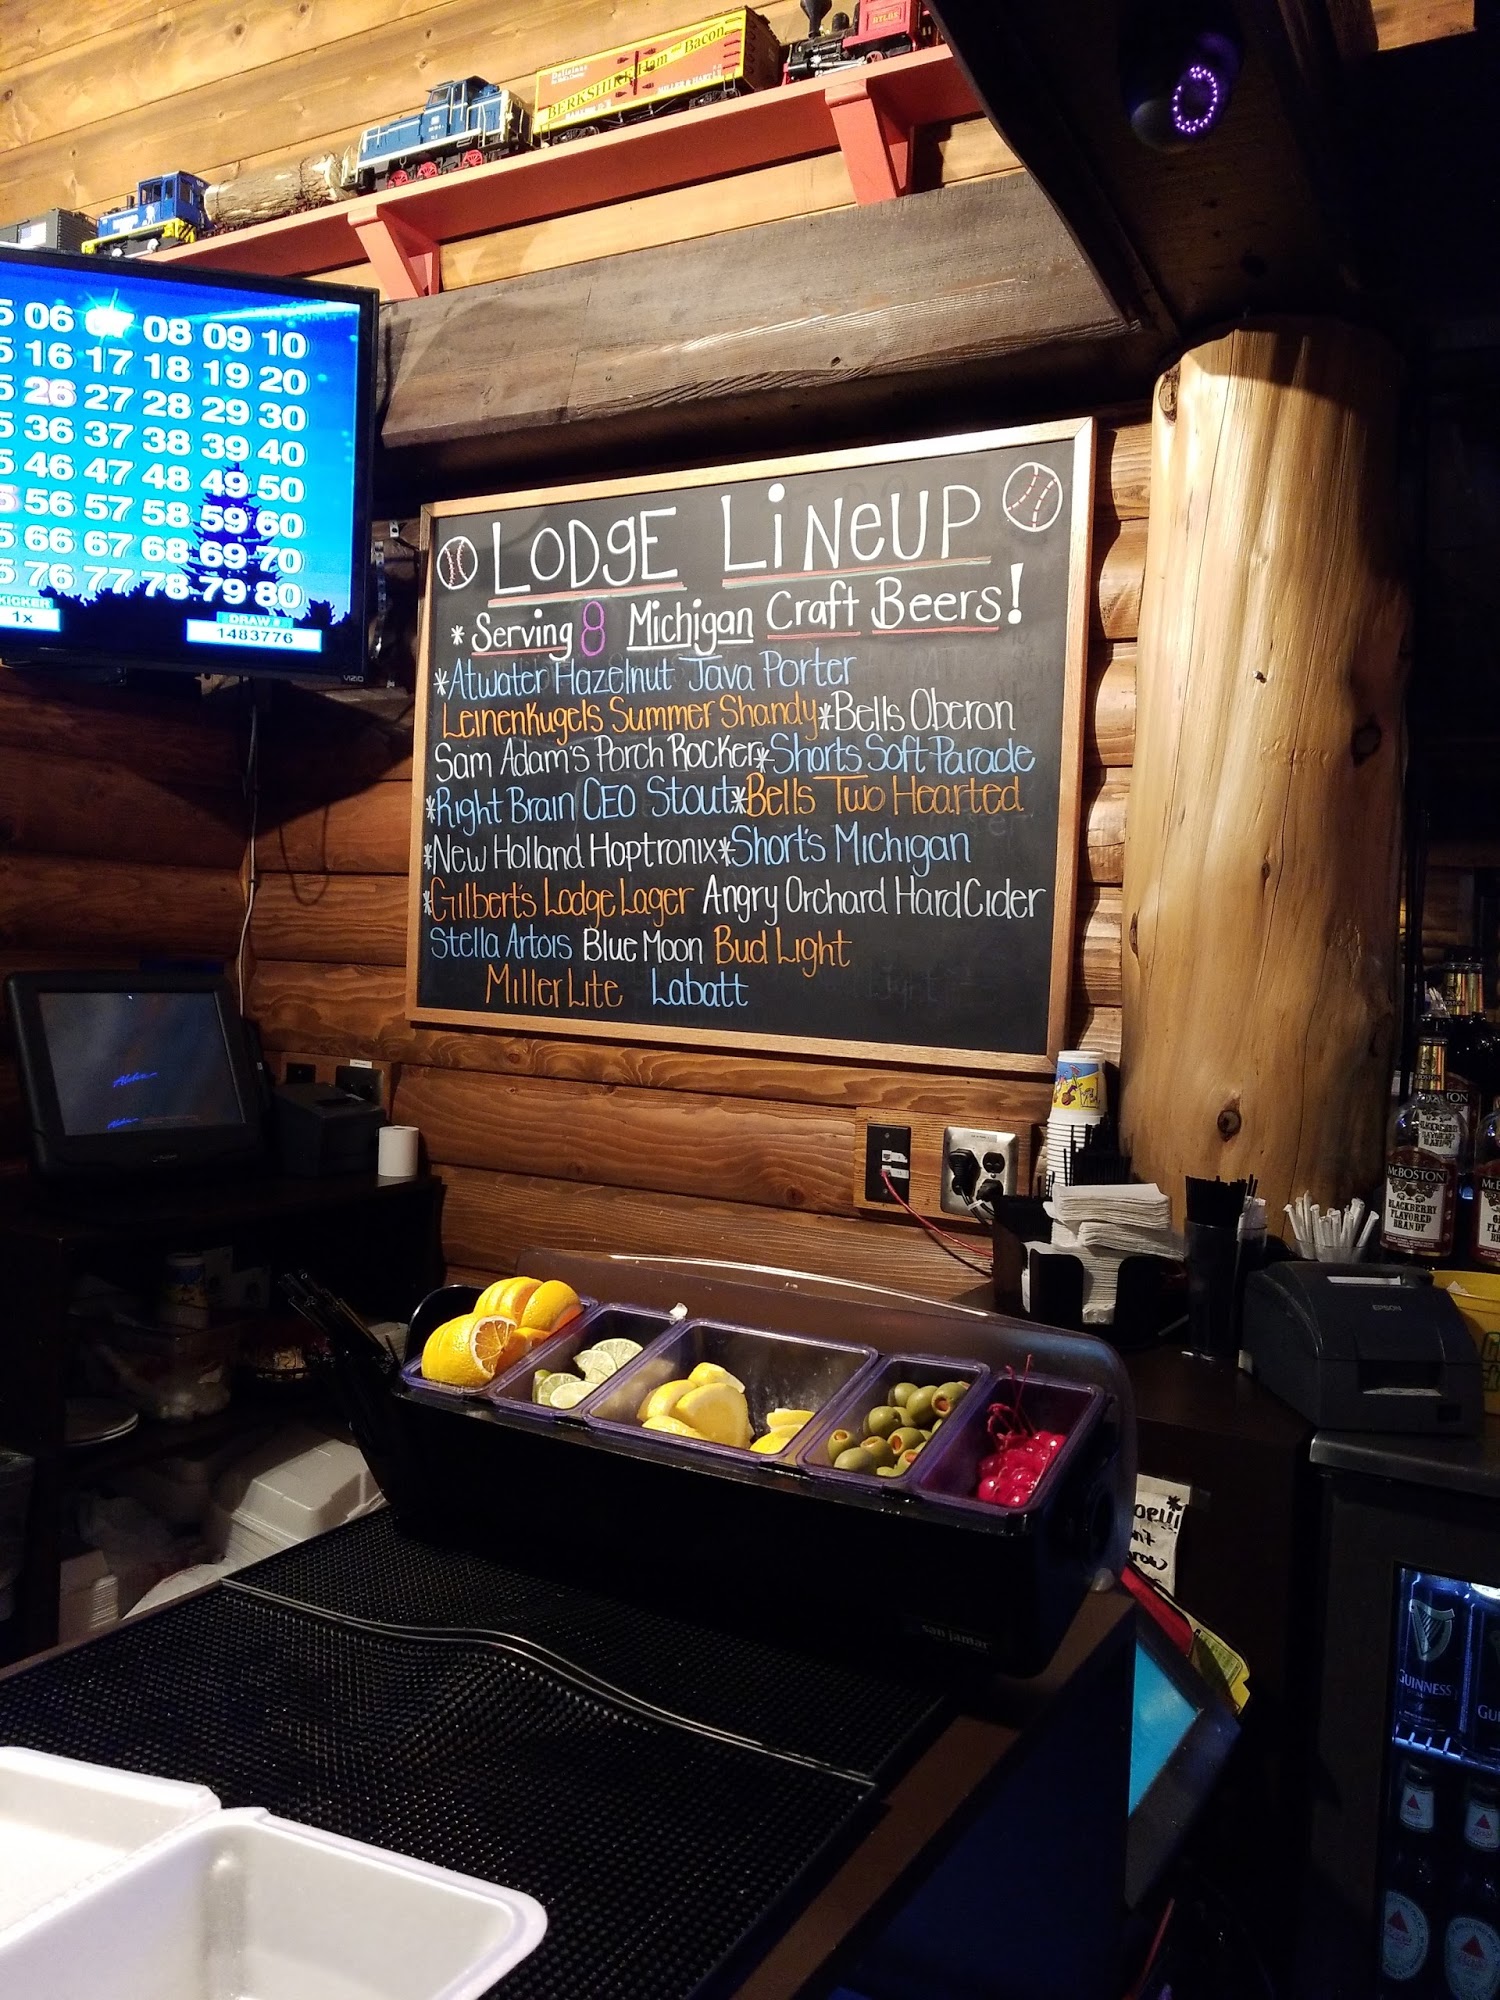 Delicious
BERKSHIRE Ham and Bacon
MILLER & HART
5 06 07 08 09 10
5 16 17 18 19 20
5 26 27 28 29 30
5 36 37 38 39 40
5 46 47 48 49 50
5 56 57 58 59 60
5 66 67 68 69 70
5 76 77 78 79 80
KICKER
1x
DRAW #
1483776
VIZIO
LODGE LINEUP
* Serving 8 Michigan Craft Beers!
*Atwater Hazelnut Java Porter
Leinenkugels Summer Shandy *Bells Oberon
Sam Adam's Porch Rocker *Shorts Soft Parade
*Right Brain CEO Stout *Bells Two Hearted
*New Holland Hoptronix *Short's Michigan
*Gilbert's Lodge Lager Angry Orchard Hard Cider
Stella Artois Blue Moon Bud Light
Miller Lite Labatt
Aloha
McBOSTON
BLACKBERRY
FLAVORED
BRANDY
EPSON
san jamar
GUINNESS
GUI